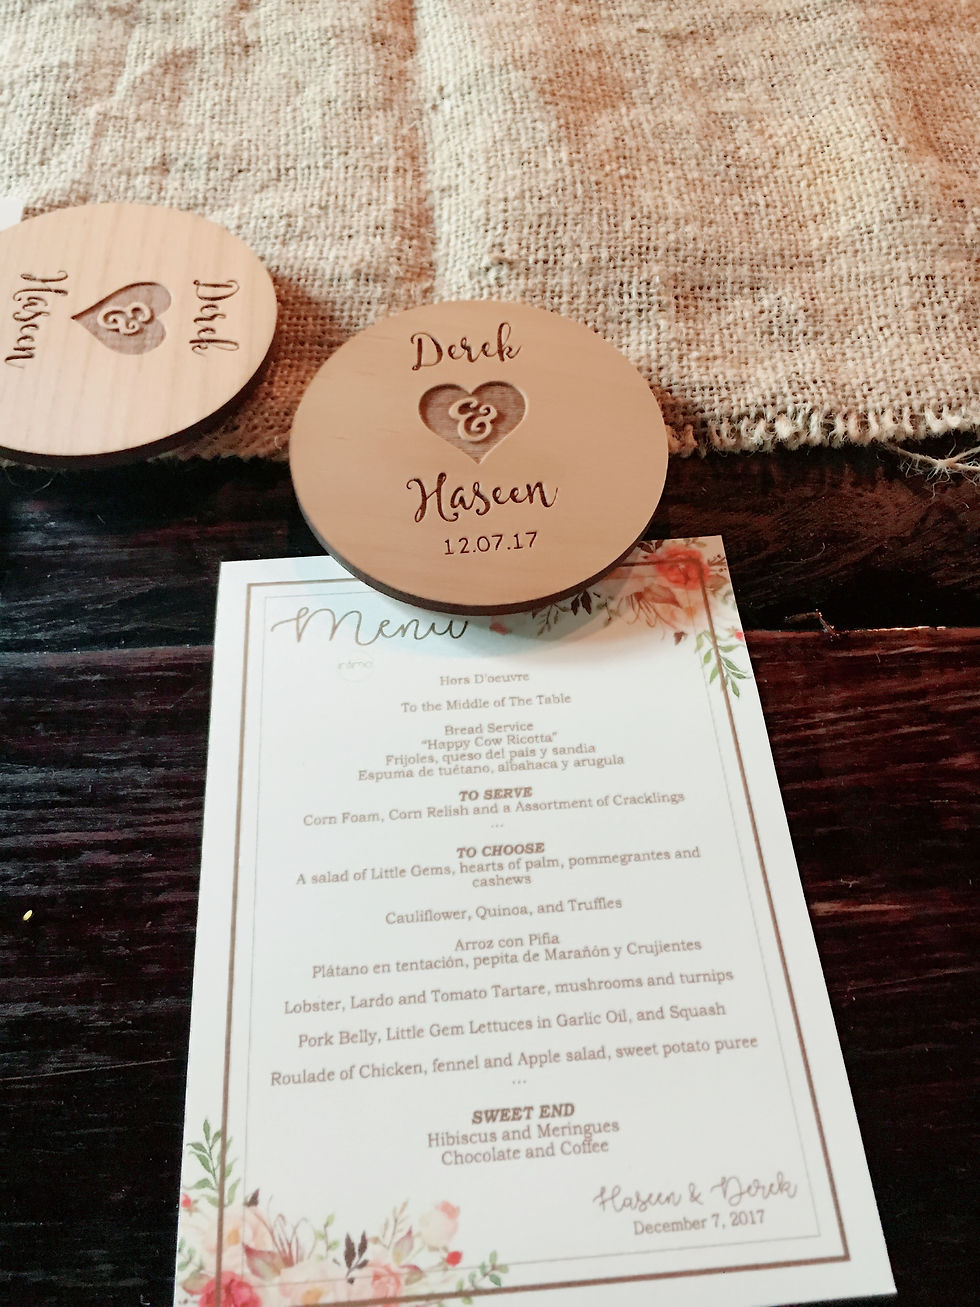 Derek
&
Haseen
Derek
&
Haseen
12.07.17
Menu
intimo
Hors D'oeuvre
To the Middle of The Table
Bread Service
"Happy Cow Ricotta"
Frijoles, queso del pais y sandia
Espuma de tuétano, albahaca y arugula
TO SERVE
Corn Foam, Corn Relish and a Assortment of Cracklings
...
TO CHOOSE
A salad of Little Gems, hearts of palm, pommegrantes and
cashews
Cauliflower, Quinoa, and Truffles
Arroz con Pifia
Plátano en tentación, pepita de Marañón y Crujientes
Lobster, Lardo and Tomato Tartare, mushrooms and turnips
Pork Belly, Little Gem Lettuces in Garlic Oil, and Squash
Roulade of Chicken, fennel and Apple salad, sweet potato puree
...
SWEET END
Hibiscus and Meringues
Chocolate and Coffee
Haseen & Derek
December 7, 2017